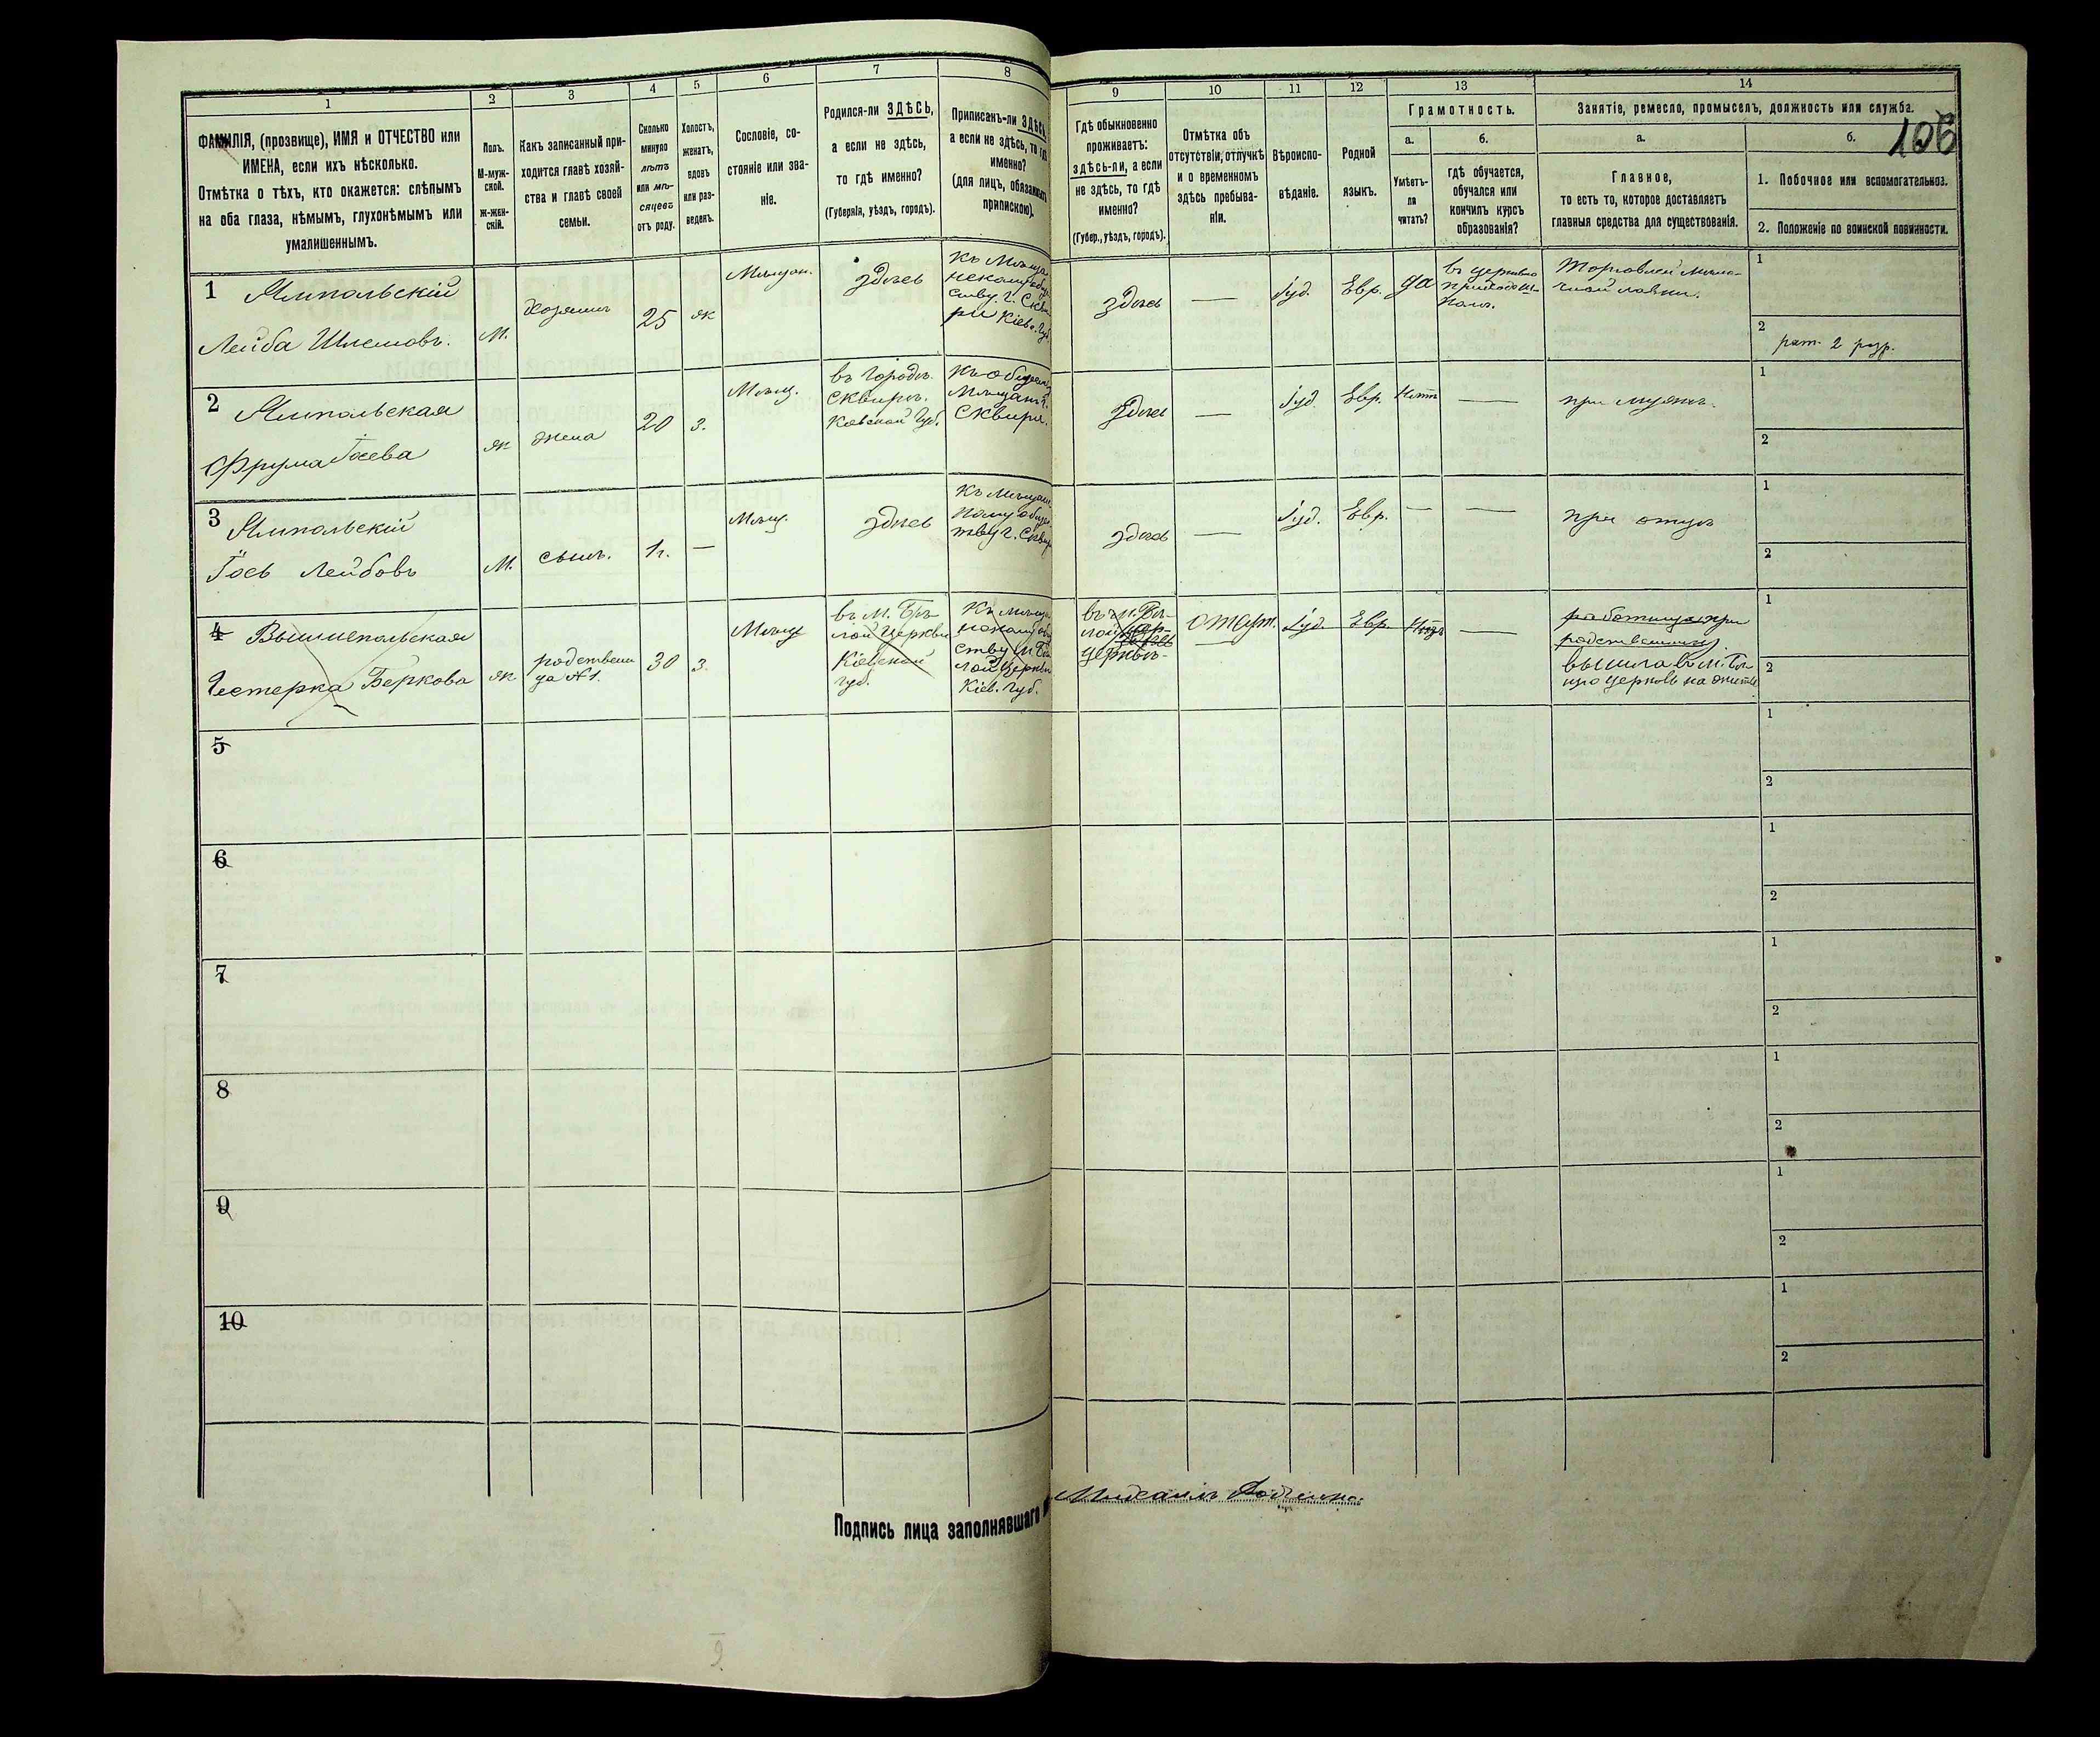 1
2
3
4
5
6
7
8
ФАМИЛІЯ, (прозвище), ИМЯ и ОТЧЕСТВО или
ИМЕНА, если ихъ нѣсколько.
Отмѣтка о тѣхъ, кто окажется: слѣпымъ
на оба глаза, нѣмымъ, глухонѣмымъ или
умалишеннымъ.
Полъ.
М-муж-
ской.
ж-жен-
скій.
Какъ записанный при-
ходится главѣ хозяй-
ства и главѣ своей
семьи.
Сколько
минуло
лѣтъ
или мѣ-
сяцевъ
отъ роду.
Холостъ,
женатъ,
вдовъ
или раз-
веденъ.
Сословіе, со-
стояніе или зва-
ніе.
Родился-ли ЗДѢСЬ,
а если не здѣсь,
то гдѣ именно?
(Губернія, уѣздъ, городъ).
Приписанъ-ли ЗДѢСЬ
а если не здѣсь, то гдѣ
именно?
(для лицъ, обязанныхъ
припискою).
9
10
11
12
13
14
Гдѣ обыкновенно
проживаетъ:
здѣсь-ли, а если
не здѣсь, то гдѣ
именно?
(Губер., уѣздъ, городъ).
Отмѣтка объ
отсутствіи, отлучкѣ
и о временномъ
здѣсь пребыва-
ніи.
Вѣроиспо-
вѣданіе.
Родной
языкъ.
Грамотность.
а.
б.
Умѣетъ-
ли
читать?
гдѣ обучается,
обучался или
кончилъ курсъ
образованія?
Занятіе, ремесло, промыселъ, должность или служба.
106
а.
б.
Главное,
то есть то, которое доставляетъ
главныя средства для существованія.
1. Побочное или вспомогательное.
2. Положеніе по воинской повинности.
1 Ямпольскій
Лейба Шлемовъ.
М.
Хозяинъ
25
ж
Мѣщан.
здѣсь
Къ Мѣща-
г. Скви-
ри Кіев. Губ
здѣсь
—
Іуд.
Евр.
да
въ
Торговлей
лавки.
1
2
рат. 2 разр.
2 Ямпольская
Фрума Іосева
ж
жена
20
з.
Мѣщ.
въ Городѣ.
Сквирѣ.
Кіевской Губ.
Къ
Сквири.
здѣсь
—
Іуд.
Евр.
Нѣтъ
—
при мужѣ.
1
2
3 Ямпольскій
Іось Лейбовъ
М.
сынъ.
1 г.
—
Мѣщ.
здѣсь
Къ Мѣщан
г. Сквир
здѣсь
—
Іуд.
Евр.
—
—
при отцѣ
1
2
4
Беркова
ж
родственни
ца №1.
30
з.
Мѣщ
въ М. Бѣ-
лой Церкви
Кіевской
губ.
Къ мѣща
ству М. Бѣ
лой Церкви
Кіев. Губ.
въ М. Бѣ-
лой
церквѣ-
отсут.
—
Іуд.
Евр.
Нѣтъ
—
работница при
вышла въ М. Бѣ-
лую церковь на жит
1
2
5
1
2
6
1
2
7
1
2
8
1
2
9
1
2
10
1
2
Подпись лица заполнявшаго
Михаилъ